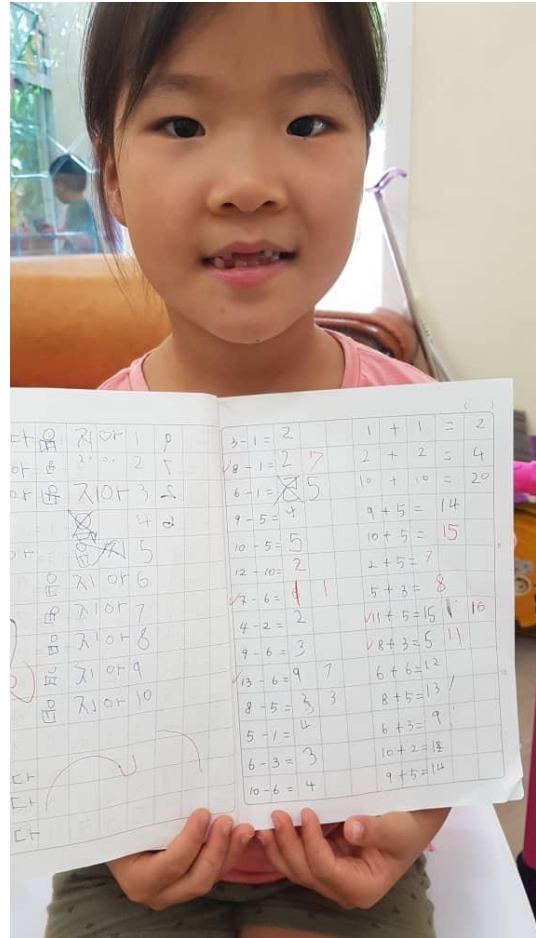 다 음 지아 1 9
아 음 2
아 음 지아 3
4
5
음 지아 6
음 지아 7
음 지아 8
음 지아 9
음 지아 10
다
다
다
3-1=2
8-1=2 7
6-1= 5
9-5=4
10-5=5
12-10=2
7-6= 1
4-2=2
9-6=3
13-6=9 7
8-5=3 3
5-1=4
6-3=3
10-6=4
1+1=2
2+2=4
10+10=20
9+5=14
10+5=15
2+5=7
5+3=8
11+5=15 16
8+3=5 11
6+6=12
8+5=13
6+3=9
10+2=12
9+5=14